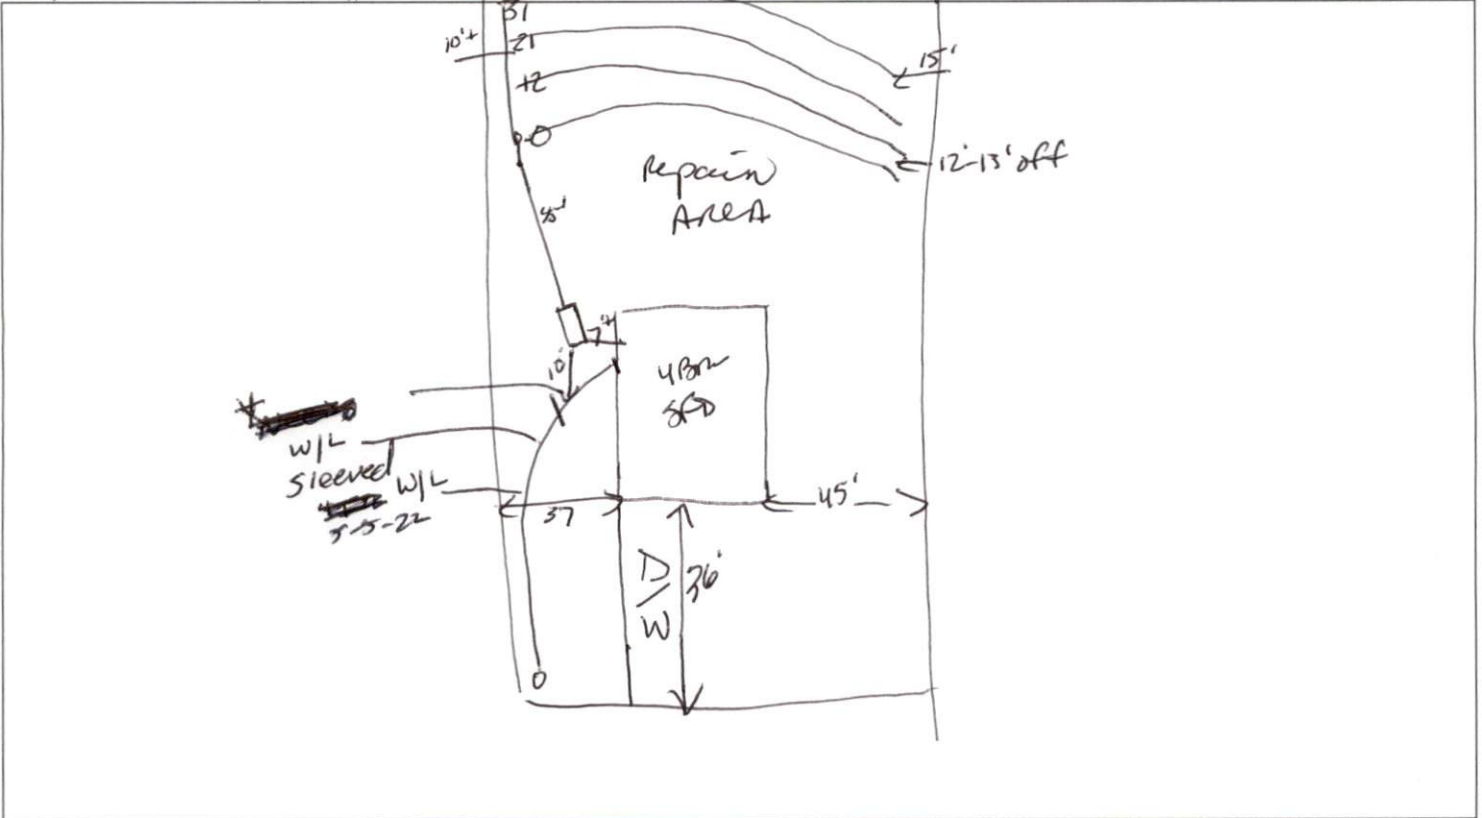 31
10'+
21
15'
12
0
12'-13' off
Repair
Area
45'
7'+
10'
4 Bdrm
SFD
W/L
Sleeved
W/L
5-5-22
37
45'
D/W
36'
0